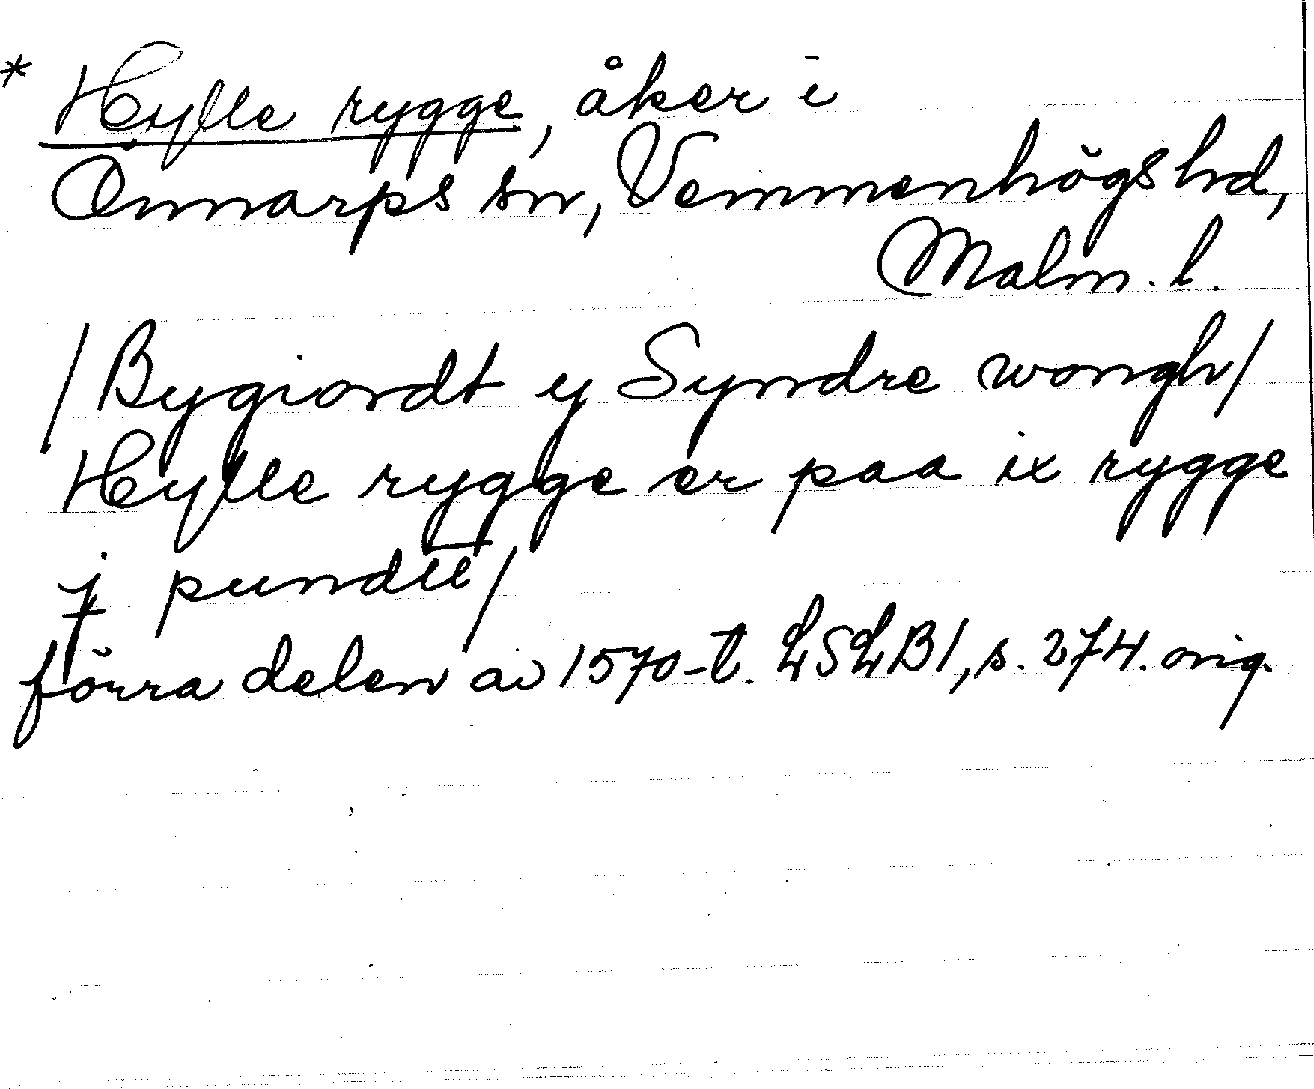 * Hylle rygge, åker i
Önnarps sn, Vemmenhögs hd,
Malm. l.
/Bygiordt y Syndre wongh/
Hylle rygge er paa ix rygge
j pundtt/
förra delen av 1570-t. LSLB1, s. 274. orig.